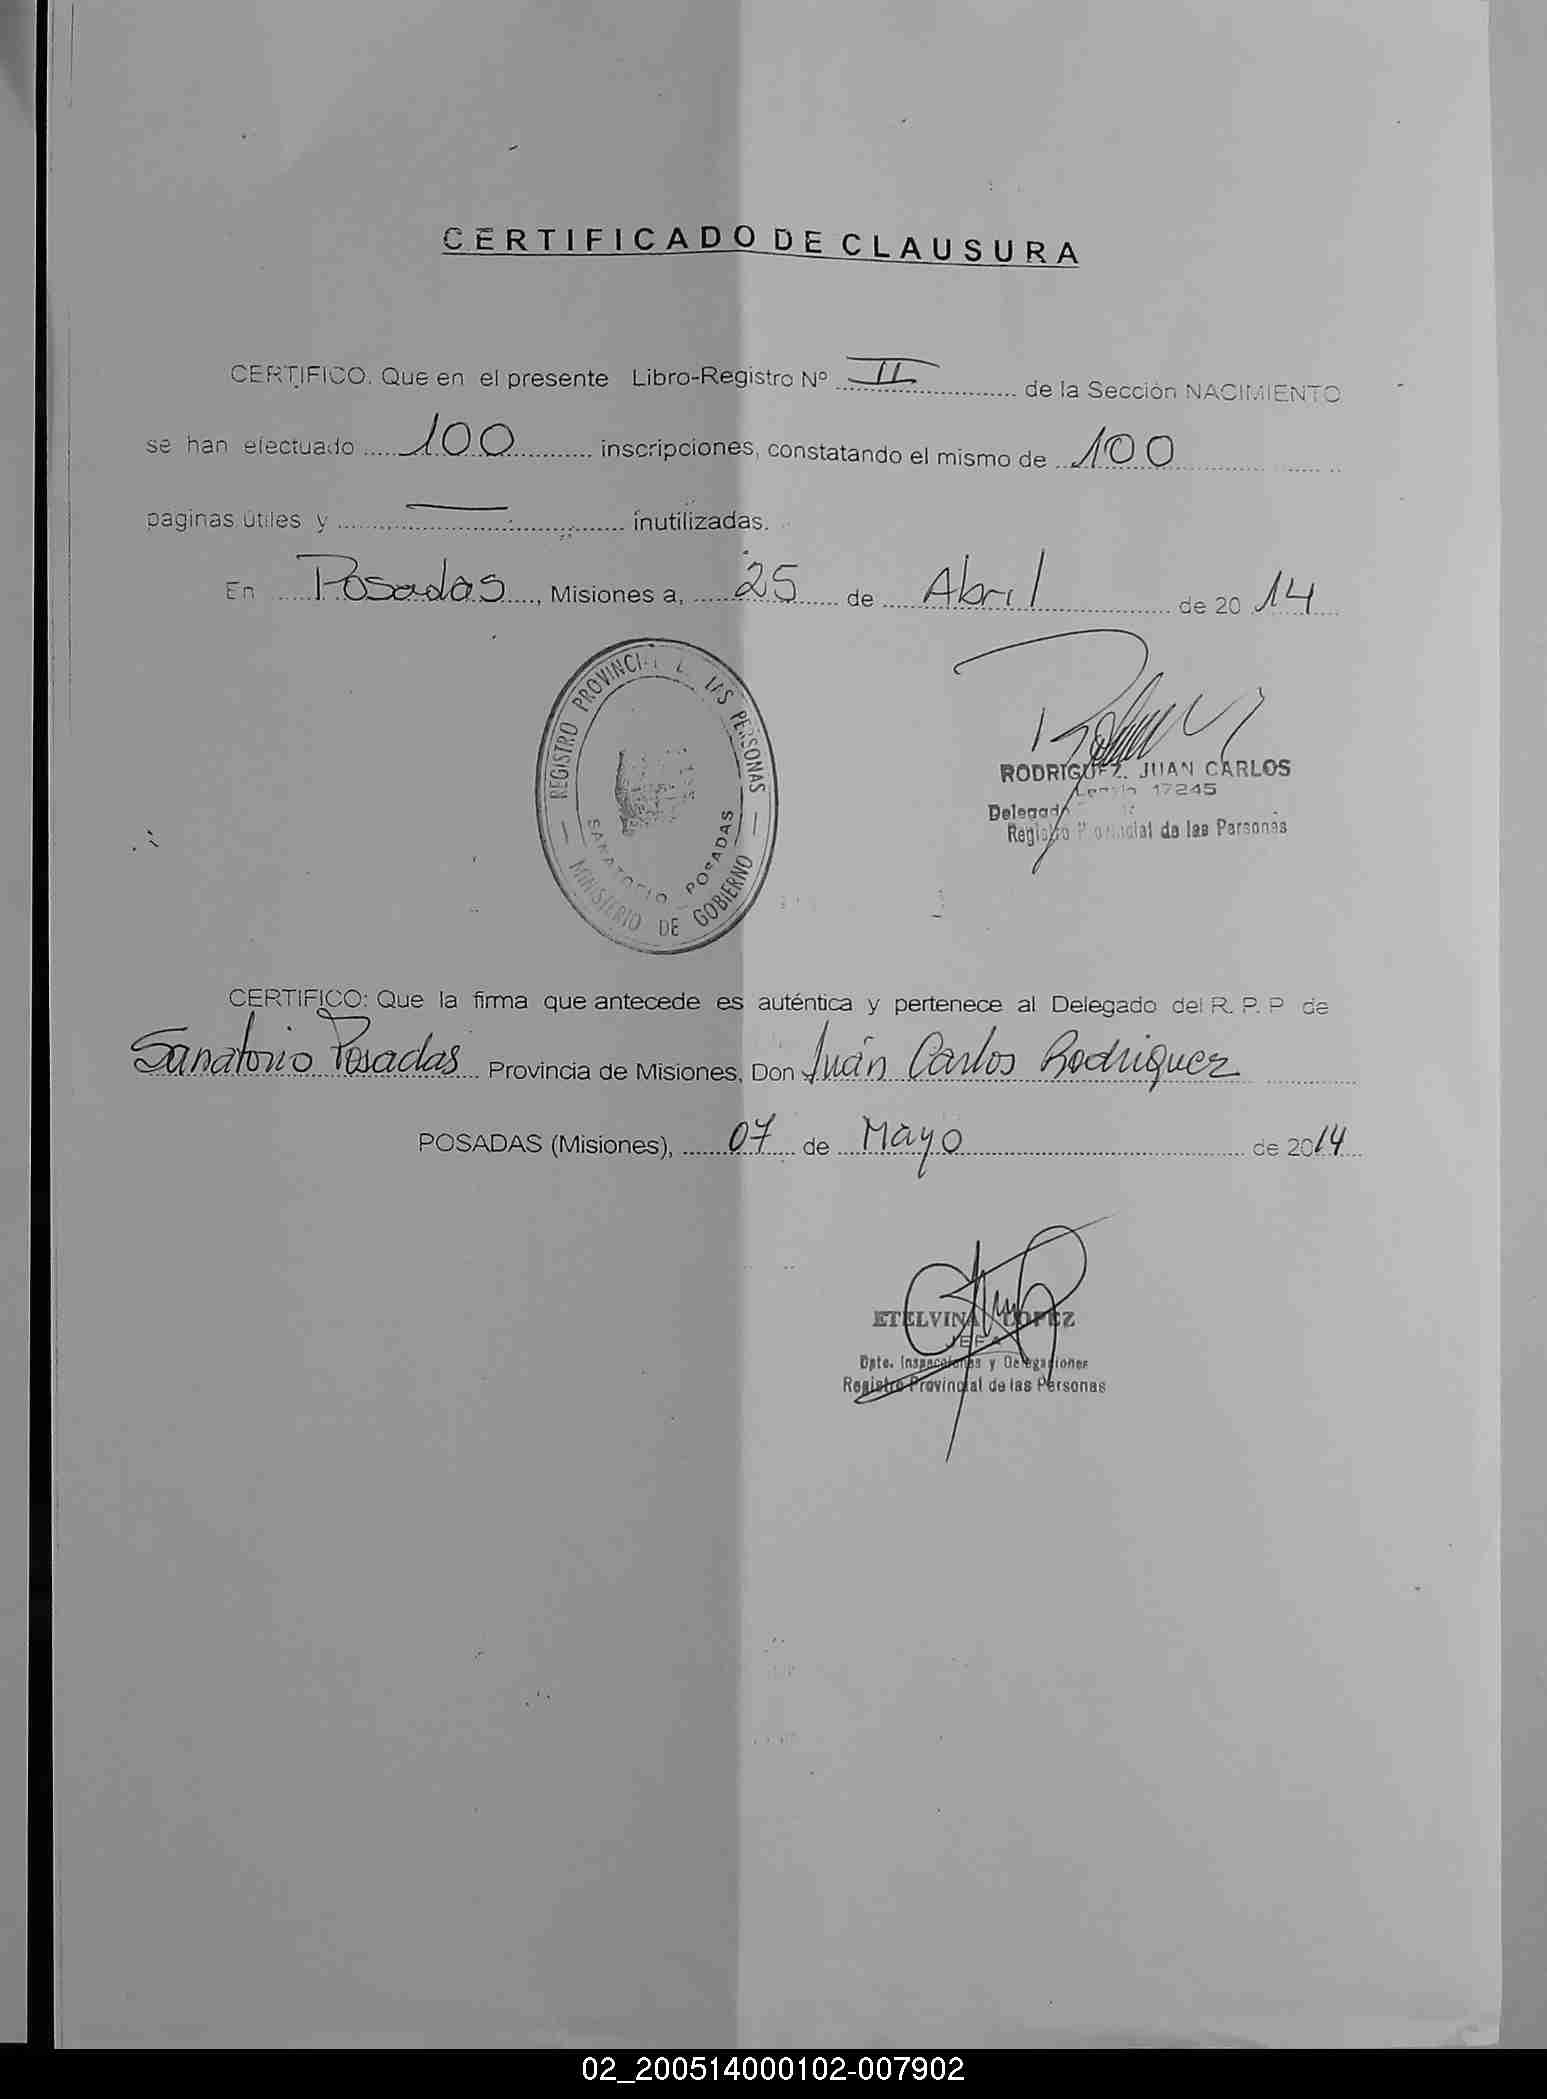 CERTIFICADO DE CLAUSURA
CERTIFICO. Que en el presente Libro-Registro Nº II de la Sección NACIMIENTO
se han efectuado 100 inscripciones, constatando el mismo de 100
paginas útiles y — inutilizadas.
En Posadas, Misiones a, 25 de Abril de 2014
REGISTRO PROVINCIAL DE LAS PERSONAS
SANATORIO POSADAS
MINISTERIO DE GOBIERNO
RODRIGUEZ. JUAN CARLOS
17245
Delegado
Registro Provincial de las Personas
CERTIFICO: Que la firma que antecede es auténtica y pertenece al Delegado del R. P. P de
Sanatorio Posadas Provincia de Misiones, Don Juán Carlos Rodriguez
POSADAS (Misiones), 07 de Mayo de 2014
ETELVINA LOPEZ
JEFA
Dpto. Inspecciones y Delegaciones
Registro Provincial de las Personas
02_200514000102-007902